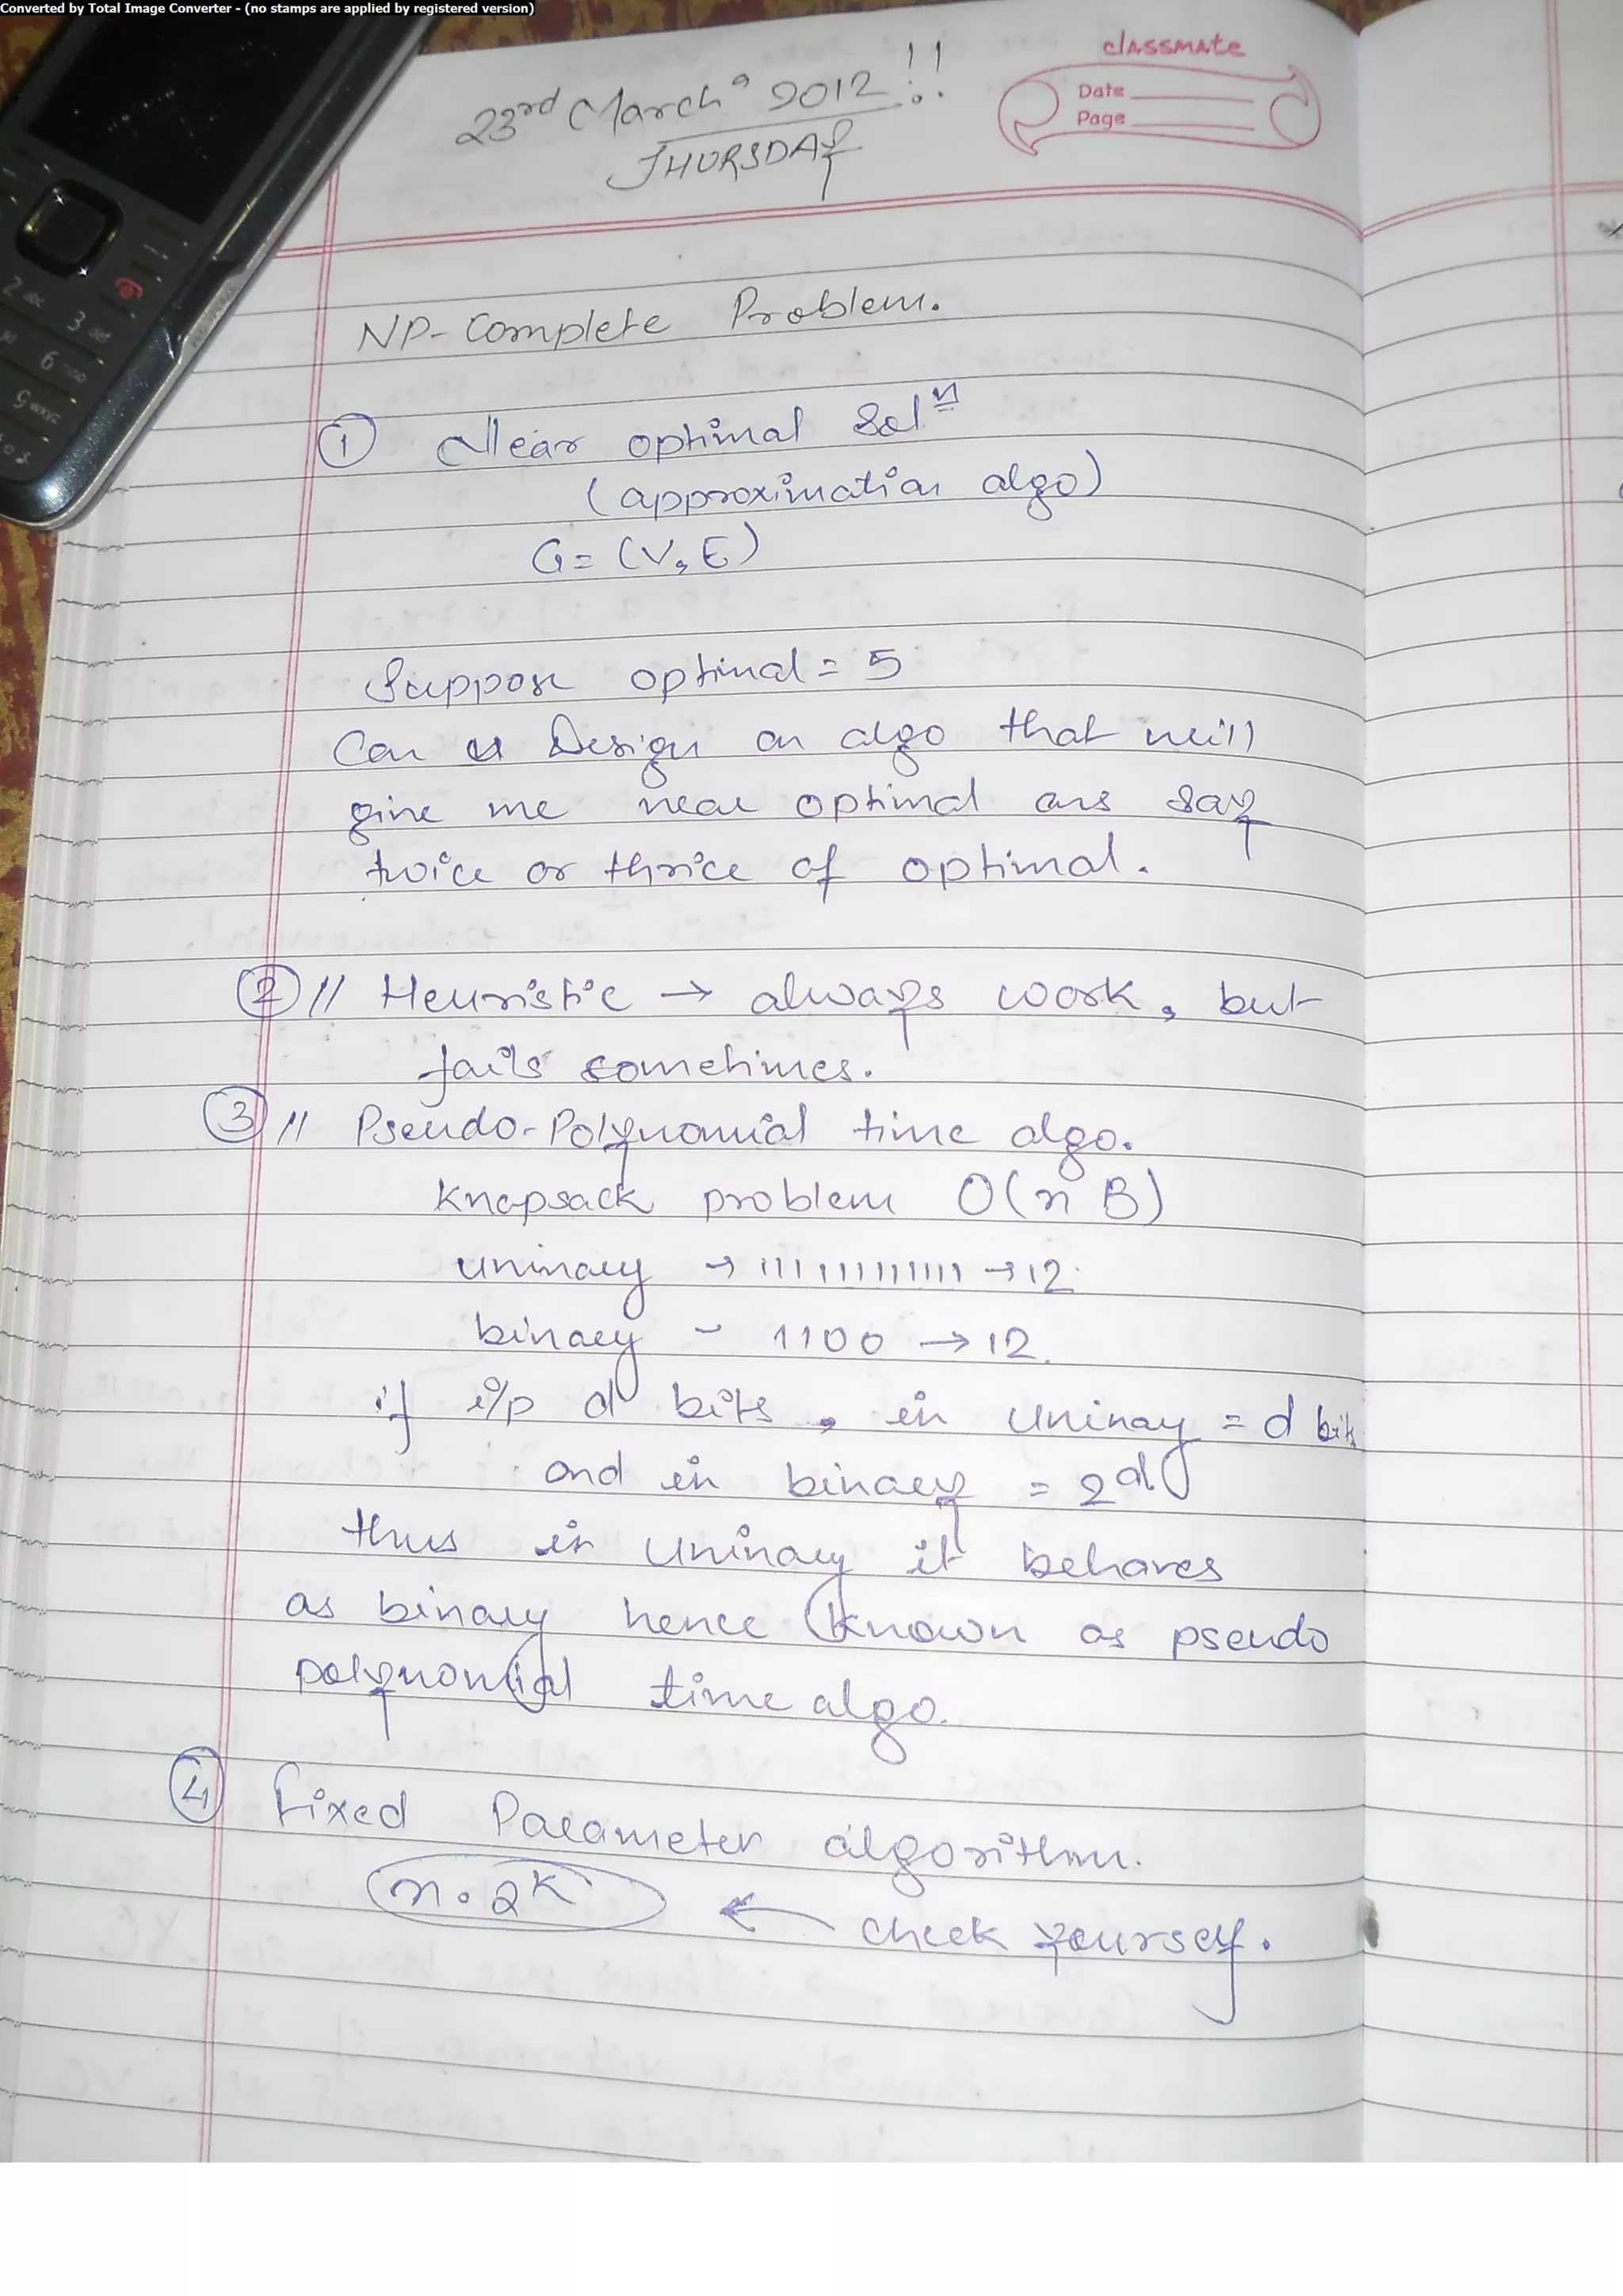 Converted by Total Image Converter - (no stamps are applied by registered version)
classmate
Date
Page
23rd March, 2012!!
THURSDAY
NP-Complete Problem.
① Near optimal Solⁿ
(approximation algo)
G = (V, E)
Suppose optimal = 5
Can u Design an algo that will
give me near optimal ans say
twice or thrice of optimal.
② // Heuristic → always work, but
fails sometimes.
③ // Pseudo-Polynomial time algo.
Knapsack problem O(n B)
uninary → 111111111111 → 12
binary - 1100 → 12.
if i/p d bits, in Uninay = d bits
and in binary = 2^d
thus in Uninary it behaves
as binary hence known as pseudo
polynomial time algo.
④ Fixed Parameter algorithm.
n · 2^K ← check yourself.
2 abc
3 def
6 mno
9 wxyz